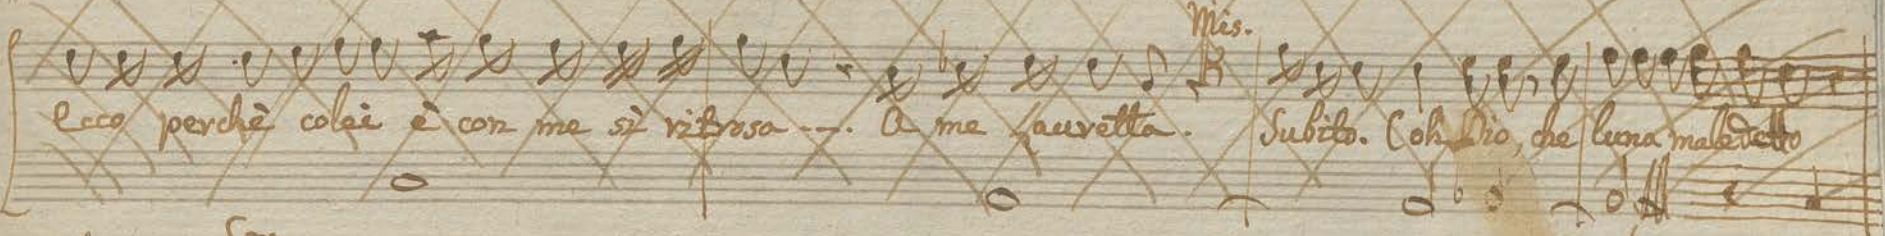 Mis.
Ecco perchè colei è con me sì ritrosa ... A me Lauretta. Subito. (oh Dio, che luna maledetto